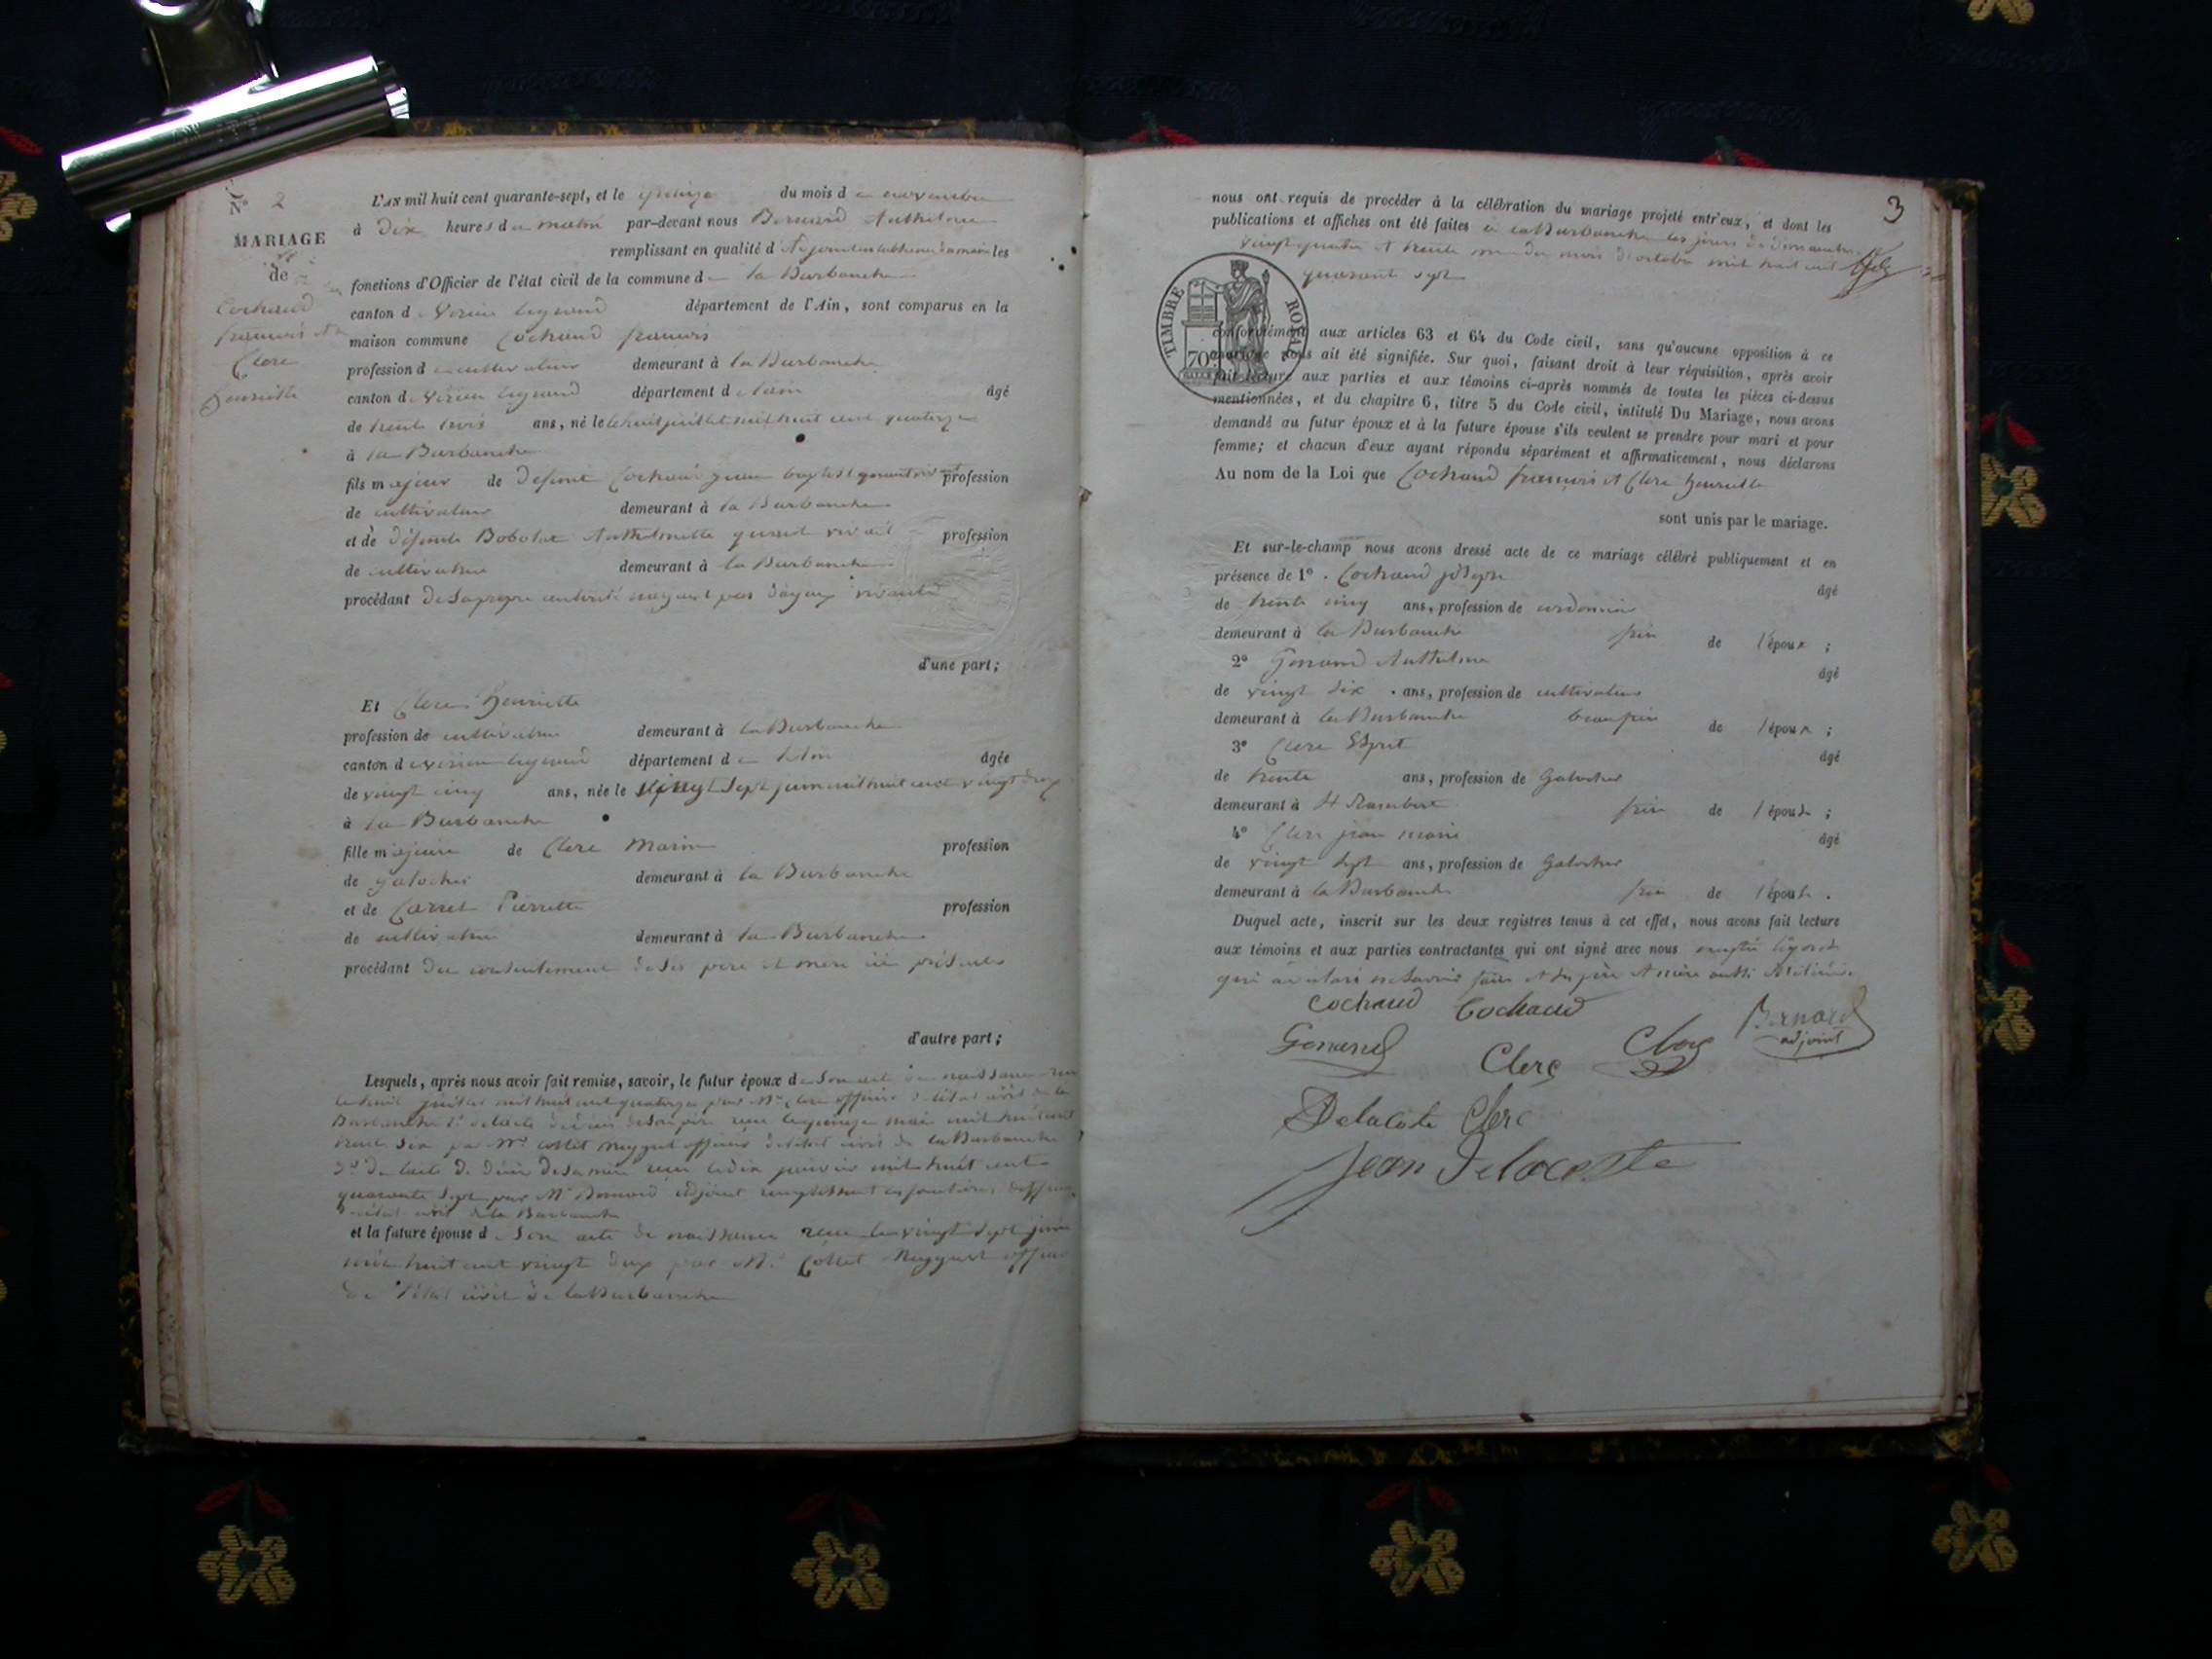 N° 2
MARIAGE
de
Cochaud
françois et
Clerc
henriette
L'AN mil huit cent quarante-sept, et le quinze du mois de novembre
à dix heures du matin par-devant nous Bernard Anthelme
remplissant en qualité d'Adjoint les
fonctions d'Officier de l'état civil de la commune de la Burbanche
canton de Virieu legrand département de l'Ain, sont comparus en la
maison commune Cochaud françois
profession de cultivateur demeurant à la Burbanche
canton de Virieu legrand département de l'ain âgé
de trente trois ans, né le le huit juillet mil huit cent quatorze
à la Burbanche
fils majeur de defunt Cochaud jean baptist quand vivait profession
de cultivateur demeurant à la Burbanche
et de défunte Bobolat Anthelmette quand vivait profession
de cultivatrice demeurant à la Burbanche
procédant de sa propre autorité nayant pas d'ayeux vivants
d'une part;
Et Clerc henriette
profession de cultivatrice demeurant à la Burbanche
canton de virieu legrand département de lain âgée
de vingt cinq ans, née le vingt sept juin mil huit cent vingt deux
à la Burbanche
fille majeure de Clerc Marin profession
de galochier demeurant à la Burbanche
et de Carrel Pierrette profession
de cultivatrice demeurant à la Burbanche
procédant du consentement de ses pere et mere ici présents
d'autre part;
Lesquels, après nous avoir fait remise, savoir, le futur époux de son acte de naissance recu
le huit juillet mil huit cent quatorze par Mr Clerc officier de létat civil de la
Burbanche 2° de lacte de décès de son père recu le quinze mai mil huit cent
trente six par Mr Collet Meygret officier de létat civil de la Burbanche
3° de lacte de décès de sa mère recu le dix janvier mil huit cent
quarante sept par Mr Bernard adjoint remplissant les fonctions d'officier
de létat civil de la Burbanche
et la future épouse de son acte de naissance recu le vingt sept juin
mil huit cent vingt deux par Mr Collet Meygret officier
de l'état civil de la Burbanche
3
nous ont requis de procéder à la célébration du mariage projeté entr'eux, et dont les
publications et affiches ont été faites à la Burbanche les jours de dimanche
vingt quatre et trente un du mois d'octobre mil huit cent
quarante sept
TIMBRE ROYAL
70
conformément aux articles 63 et 64 du Code civil, sans qu'aucune opposition à ce
mariage nous ait été signifiée. Sur quoi, faisant droit à leur réquisition, après avoir
fait lecture aux parties et aux témoins ci-après nommés de toutes les pièces ci-dessus
mentionnées, et du chapitre 6, titre 5 du Code civil, intitulé Du Mariage, nous avons
demandé au futur époux et à la future épouse s'ils veulent se prendre pour mari et pour
femme; et chacun d'eux ayant répondu séparément et affirmativement, nous déclarons
Au nom de la Loi que Cochaud françois et Clerc henriette
sont unis par le mariage.
Et sur-le-champ nous avons dressé acte de ce mariage célébré publiquement et en
présence de 1° Cochaud joseph âgé
de trente cinq ans, profession de cordonnier
demeurant à la Burbanche frère de l'époux;
2° Gonand Anthelme âgé
de vingt six ans, profession de cultivateur
demeurant à la Burbanche beaufrère de l'époux;
3° Clerc Esprit âgé
de trente ans, profession de Galochier
demeurant à St Rambert frère de l'épouse;
4° Clerc jean marie âgé
de vingt sept ans, profession de Galochier
demeurant à la Burbanche frère de l'épouse.
Duquel acte, inscrit sur les deux registres tenus à cet effet, nous avons fait lecture
aux témoins et aux parties contractantes qui ont signé avec nous excepté lépouse
qui a declaré ne savoir faire et des père et mère aussi
Cochaud Cochaud
Bernard
adjoint
Gonand Clerc Clerc
Delacôte Clerc
Jean Delacoste